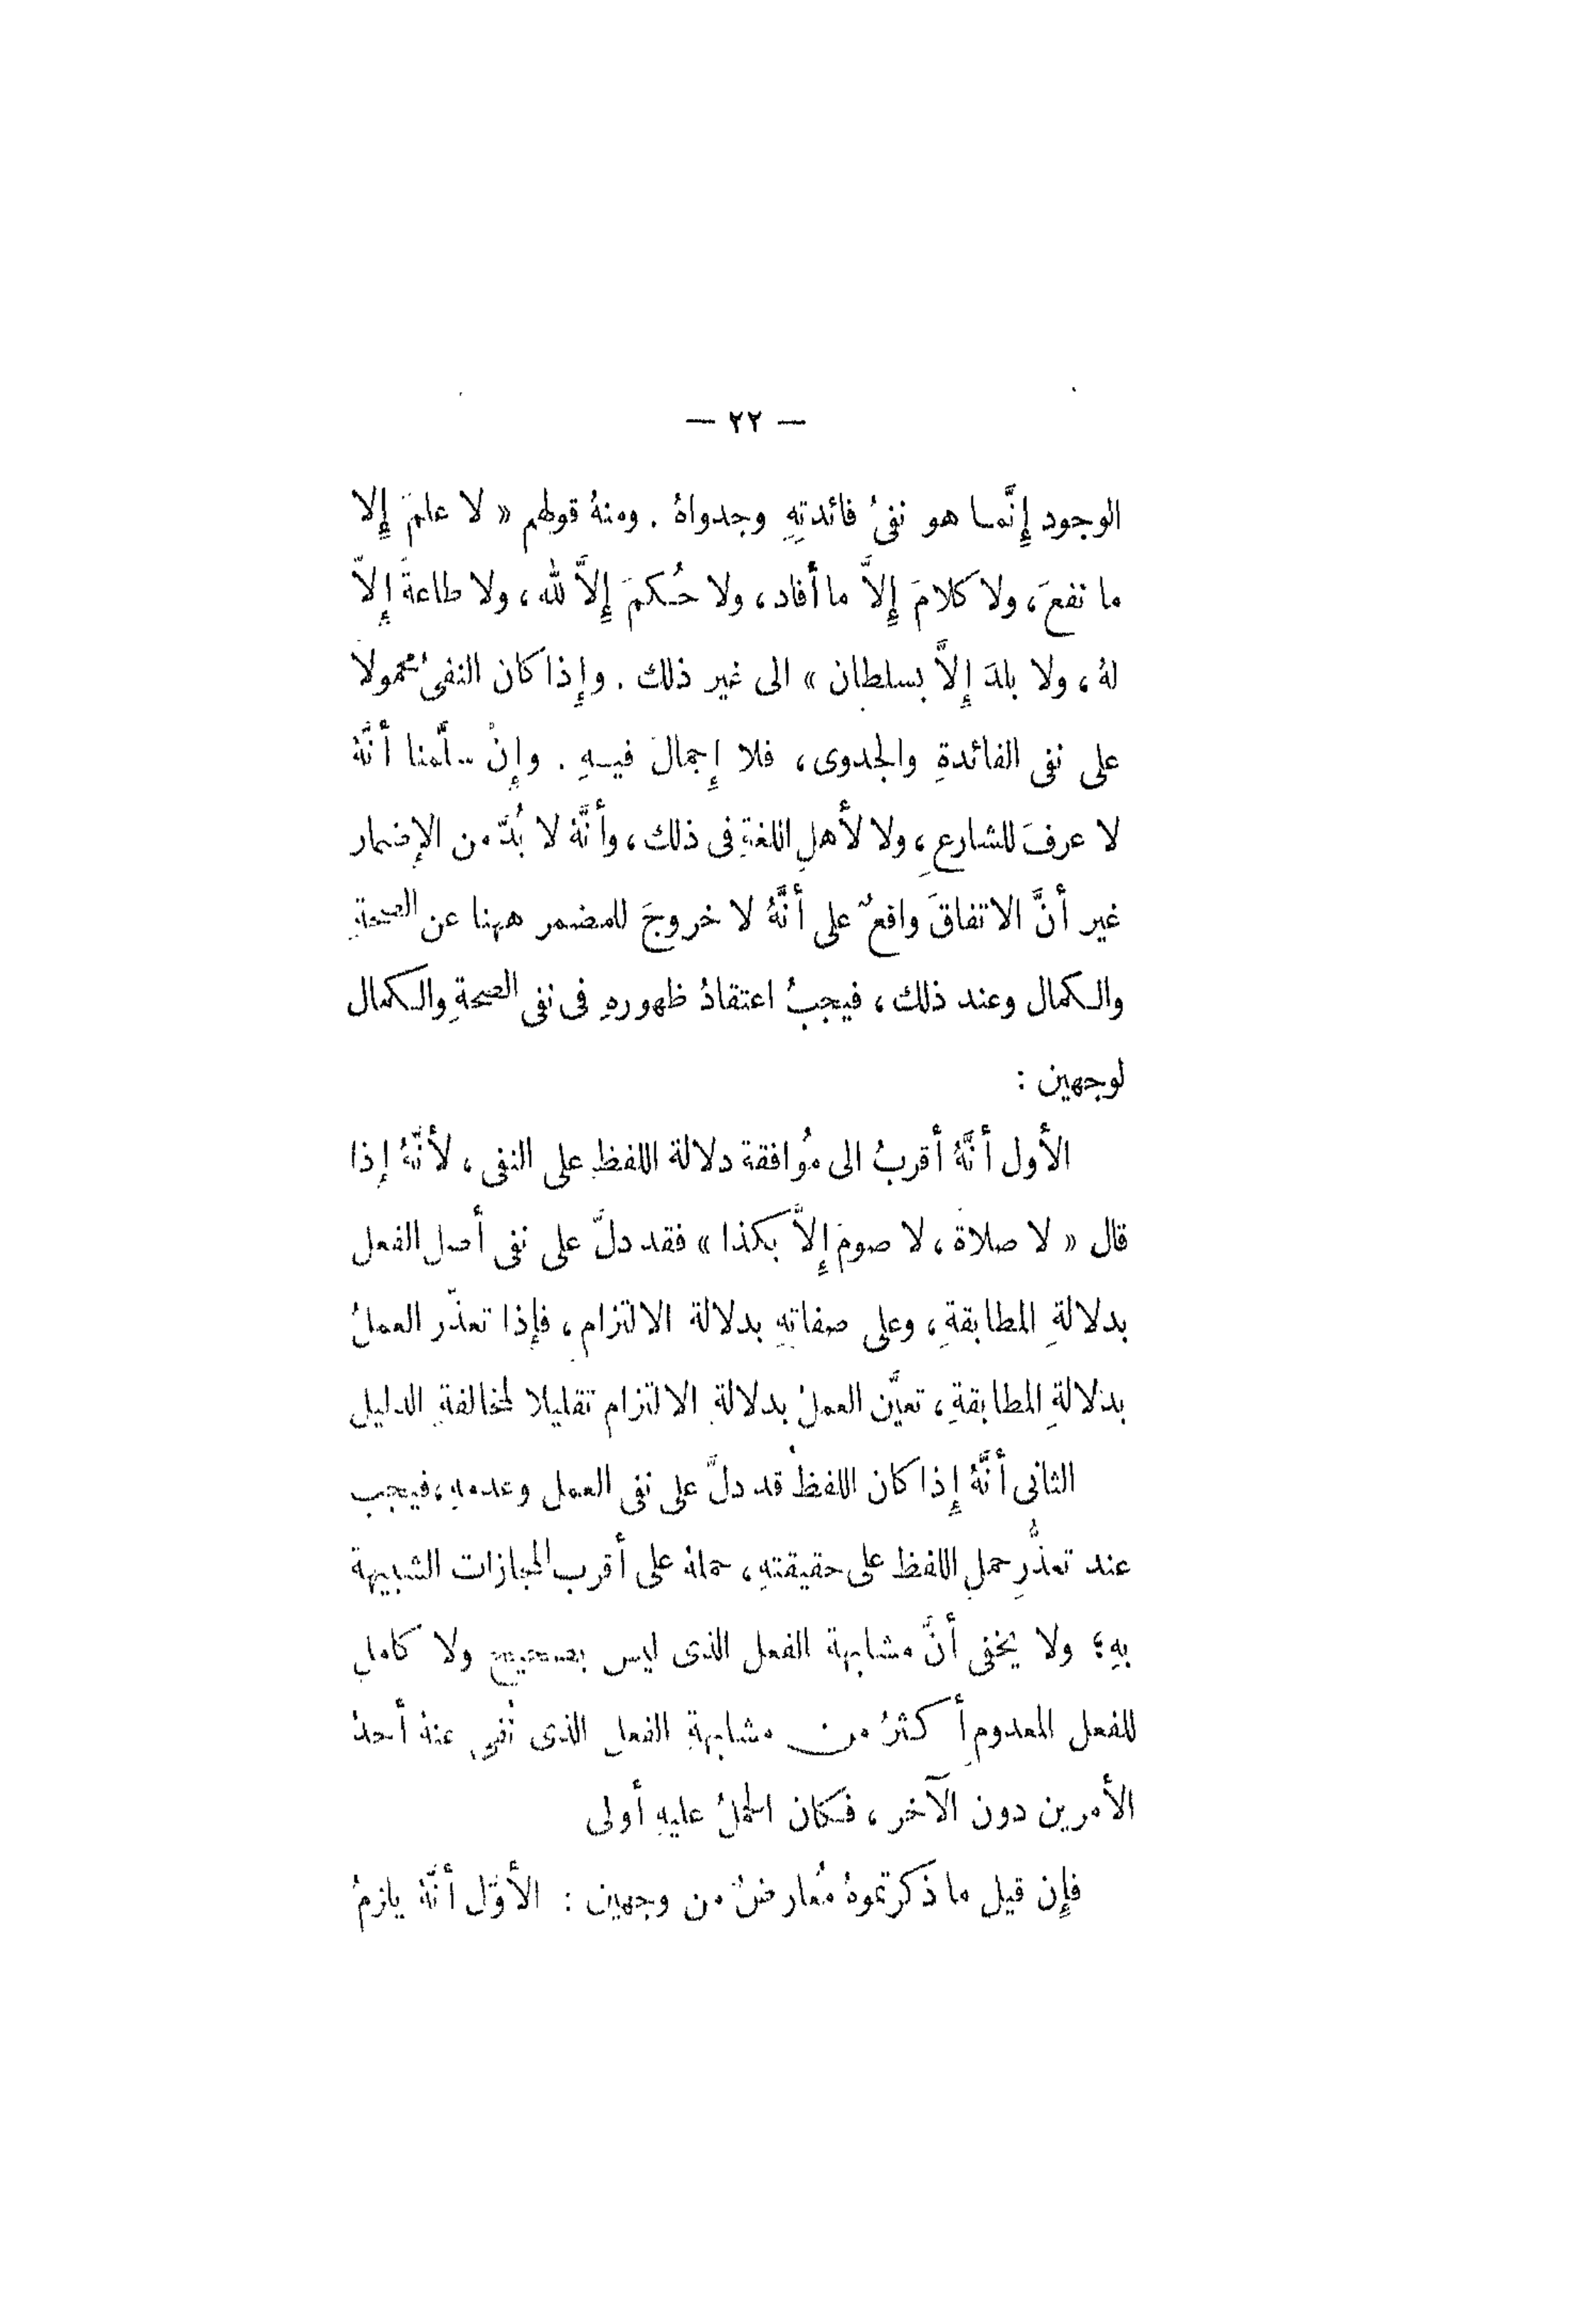 — ٢٢ —
الوجود إِنَّما هو نفىُ فائدتِهِ وجدواهُ . ومنهُ قولهم « لا علمَ إِلا
ما نفعَ، ولا كلامَ إِلاَّ ما أفاد، ولا حُكمَ إِلاَّ لله، ولا طاعةَ إِلاَّ
لهُ، ولا بلدَ إِلاَّ بسلطان » الى غير ذلك . وإِذا كان النفىُ محمولا
على نفى الفائدةِ والجدوى، فلا إِجمالَ فيهِ . وإِنْ سلَّمنا أنَّهُ
لا عرفَ للشارعِ، ولا لأهلِ اللغةِ فى ذلك، وأنَّهُ لا بُدَّ من الإضمار
غير أنَّ الاتفاقَ واقعٌ على أنَّهُ لا خروجَ للمضمر ههنا عن الصحةِ
والكمال وعند ذلك، فيجبُ اعتقادُ ظهورهِ فى نفى الصحةِ والكمال
لوجهين :
الأول أنَّهُ أقربُ الى مُوافقة دلالة اللفظِ على النفى، لأنَّهُ إذا
قال « لا صلاة، لا صومَ إِلاَّ بكذا » فقد دلَّ على نفى أصل الفعل
بدلالةِ المطابقةِ، وعلى صفاتهِ بدلالة الالتزام، فإذا تعذّر العملُ
بدلالةِ المطابقةِ، تعيَّن العملُ بدلالةِ الالتزام تقليلا لمخالفةِ الدليل
الثانى أنَّهُ إِذا كان اللفظُ قد دلَّ على نفى العمل وعدمهِ، فيجب
عند تعذُّرِ حملِ اللفظ على حقيقتهِ، حملهُ على أقرب المجازات الشبيهة
بهِ؛ ولا يخفى أنَّ مشابهة الفعل الذى ليس بصحيح ولا كامل
للفعل المعدومِ أكثرُ من مشابهةِ الفعل الذى نُفى عنهُ أحدُ
الأمرين دون الآخر، فكان الحملُ عليهِ أولى
فإِن قيل ما ذكرتموهُ مُعارضٌ من وجهين : الأوّل أنَّهُ يلزمُ